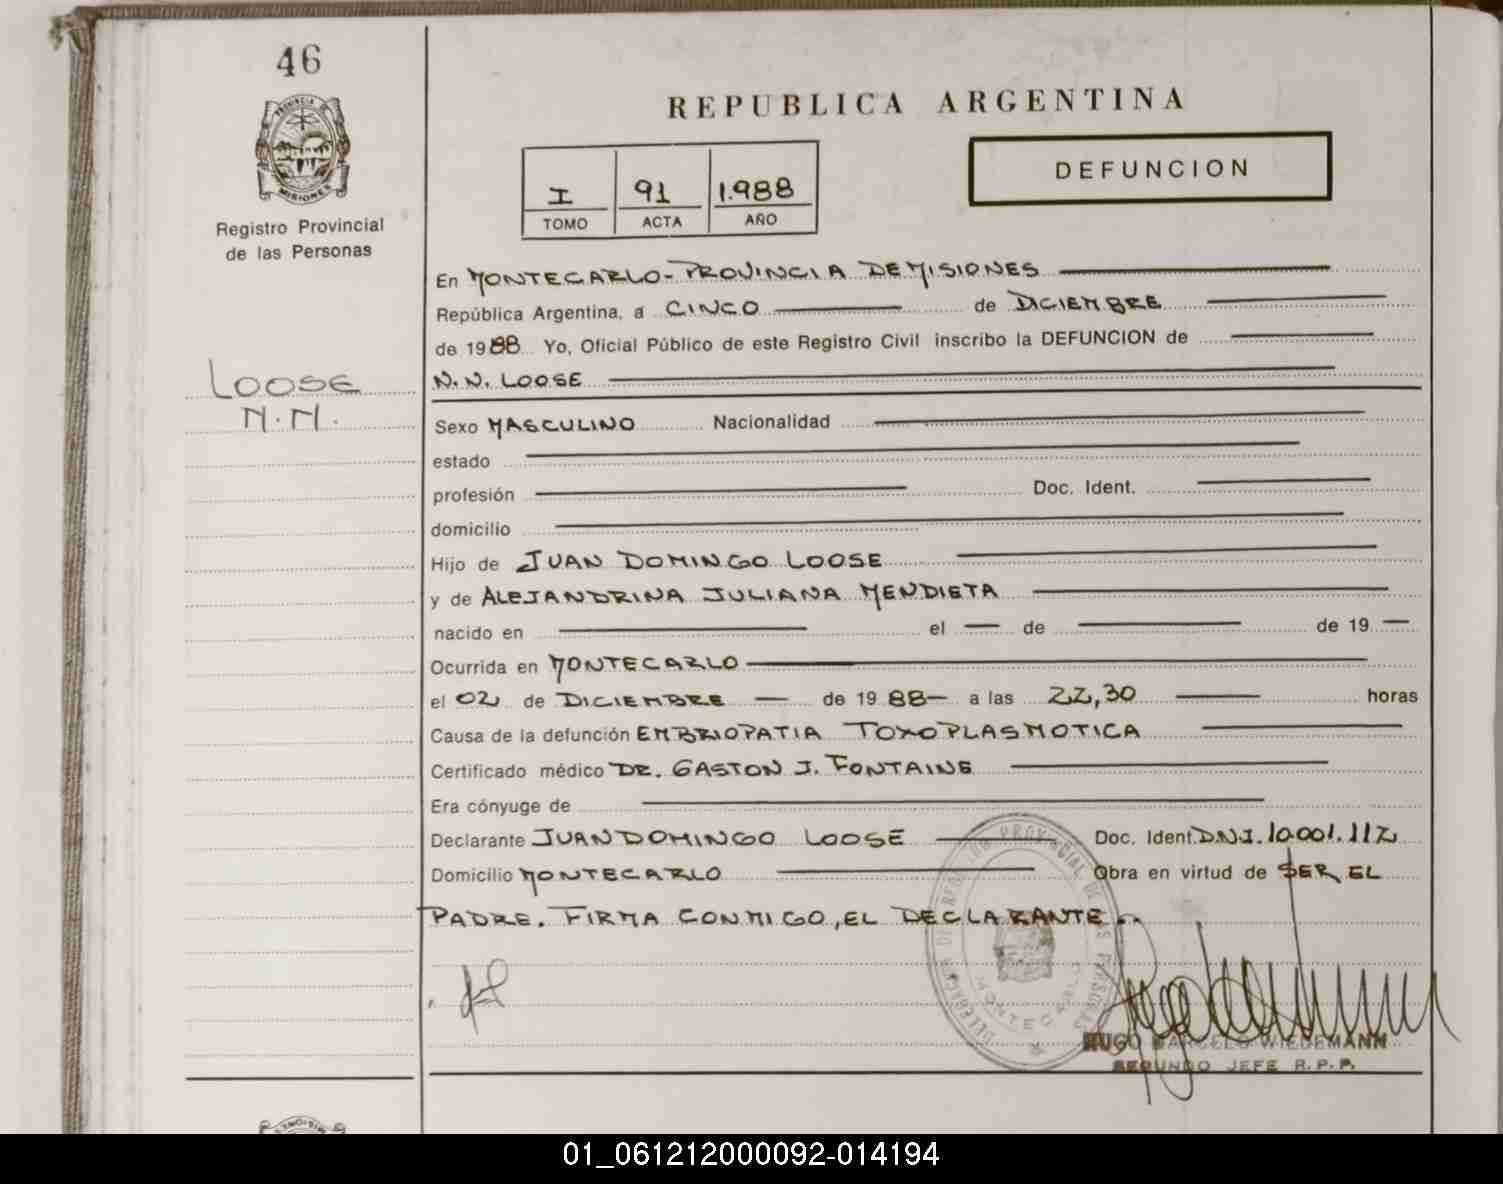 46
PROVINCIA DE
MISIONES
Registro Provincial
de las Personas
LOOSE
N.N.
REPUBLICA ARGENTINA
I 91 1.988
TOMO ACTA AÑO
DEFUNCION
En MONTECARLO-PROVINCIA DE MISIONES
República Argentina, a CINCO de DICIEMBRE
de 1988 Yo, Oficial Público de este Registro Civil inscribo la DEFUNCION de
N.N. LOOSE
Sexo MASCULINO Nacionalidad
estado
profesión Doc. Ident.
domicilio
Hijo de JUAN DOMINGO LOOSE
y de ALEJANDRINA JULIANA MENDIETA
nacido en el — de de 19 —
Ocurrida en MONTECARLO
el 02 de DICIEMBRE — de 19 88— a las 22,30 horas
Causa de la defunción EMBRIOPATIA TOXOPLASMOTICA
Certificado médico DR. GASTON J. FONTAINE
Era cónyuge de
Declarante JUAN DOMINGO LOOSE Doc. Ident. D.N.I. 10.001.112
Domicilio MONTECARLO Obra en virtud de SER EL
PADRE. FIRMA CONMIGO, EL DECLARANTE..
MONTECARLO
HUGO MARCELO WIEDEMANN
SEGUNDO JEFE R.P.P.
01_061212000092-014194